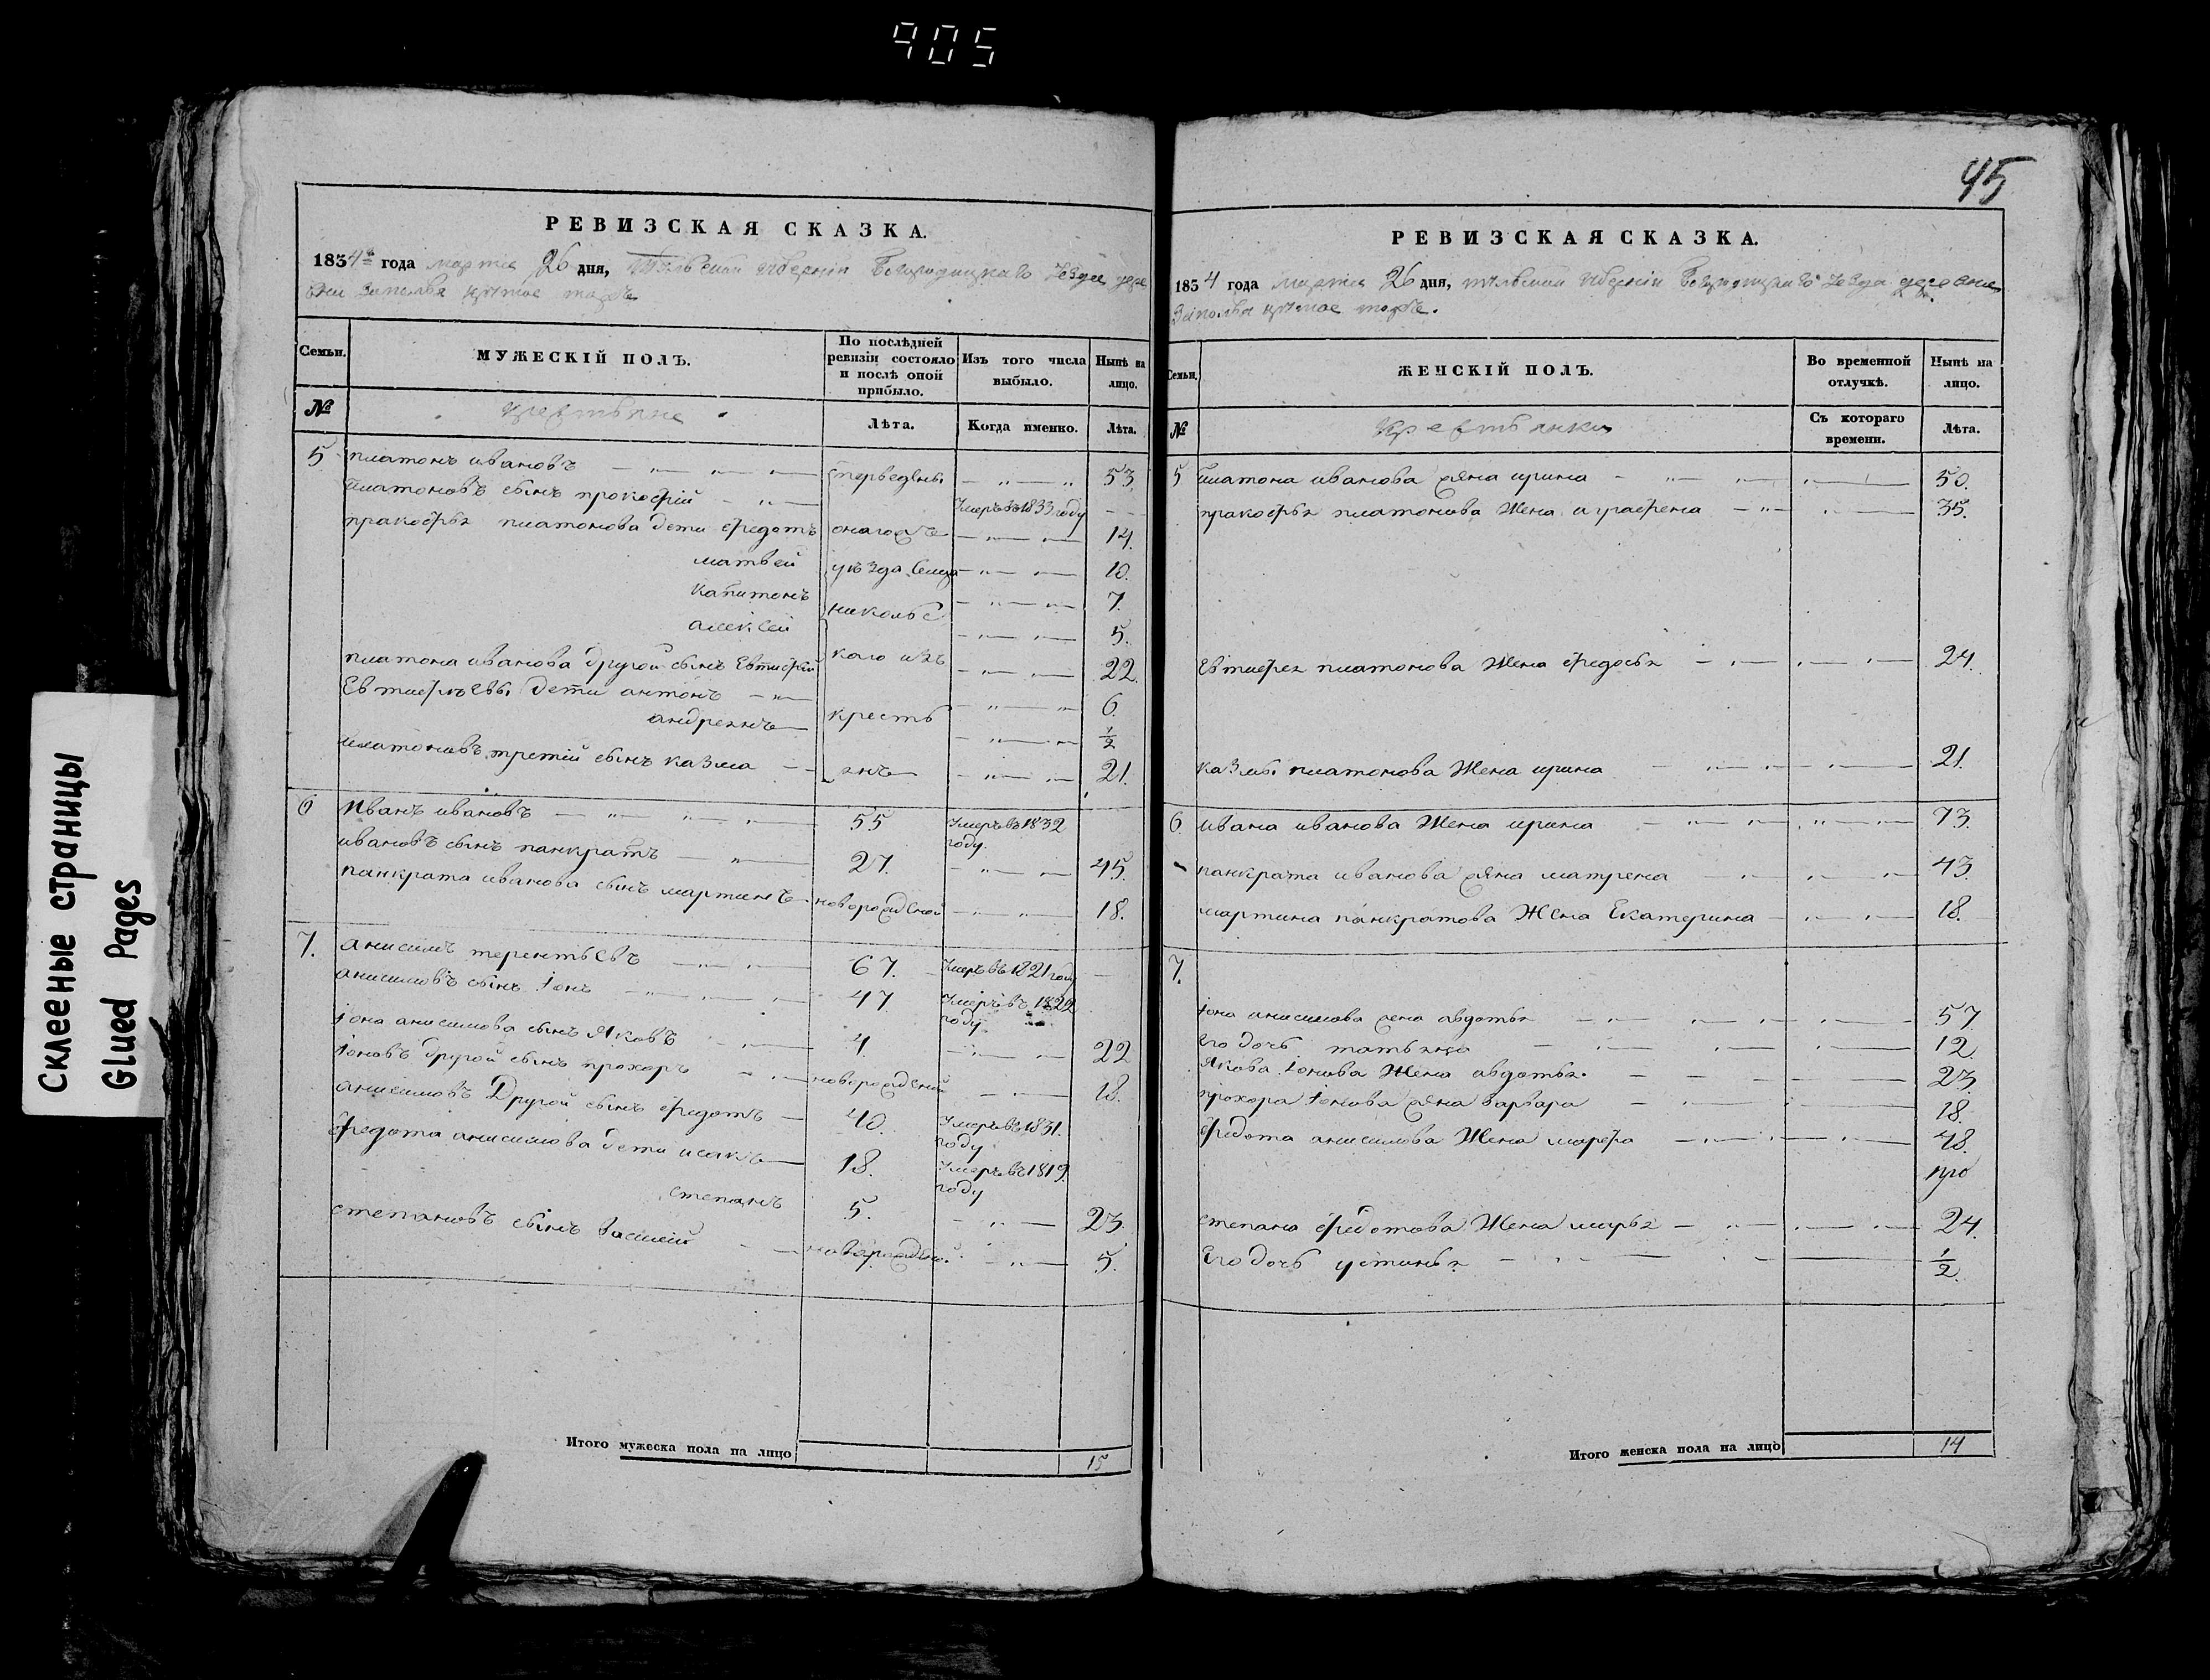 905
45
Склееные страницы
Glued Pages
РЕВИЗСКАЯ СКАЗКА.
1834го года марта 26 дня, Тульской губернiи Богородицкаго уезда дере
вни Заполья крутое тожъ
Семьи.
МУЖЕСКІЙ ПОЛЪ.
По послѣдней ревизіи состояло и послѣ оной прибыло.
Изъ того числа выбыло.
Нынѣ на лицо.
№
крестьяне
Лѣта.
Когда именно.
Лѣта.
5 платонъ ивановъ переведены 53
платоновъ сынъ прокофiй Умеръ въ 1833 году
пракофья платонова дети федотъ онагожъ 14.
матвей уезда Селца 10.
капитонъ никольс 7.
алексей 5.
платона иванова другой сынъ Евтифей каго изъ 22.
Евтифеевы дети антонъ 6.
андреянъ кресть 1/2
платоновъ третiй сынъ казма янъ 21.
6 Иванъ ивановъ 55 Умеръ въ 1832 году.
ивановъ сынъ панкратъ 27. 45.
панкрата иванова сынъ мартинъ новорожденой 18.
7. анисимъ терентьевъ 67. Умеръ въ 1821 году
анисимовъ сынъ Iонъ 47 Умеръ въ 1822 году
Iона анисимова сынъ Яковъ 4. 22
Iоновъ другой сынъ прохоръ новорожденой 18.
анисимовъ Другой сынъ федотъ 40. Умеръ въ 1831. году
федота анисимова дети исакъ 18. Умеръ въ 1819. году
степанъ 5. 23.
степановъ сынъ василей новорожденой. 5.
Итого мужеска пола на лицо 15
РЕВИЗСКАЯ СКАЗКА.
1834 года марта 26 дня, тульской губернiи Богородицкаго уезда деревни
Заполья крутое тожъ.
Семьи.
ЖЕНСКІЙ ПОЛЪ.
Во временной отлучкѣ.
Нынѣ на лицо.
№
крестьянки
Съ котораго времени.
Лѣта.
5 платона иванова жена ирина 50.
пракофья платонова Жена аграфена 35.
Евтифея платонова Жена федосья 24.
казмы платонова Жена ирина 21.
6. ивана иванова Жена ирина 73.
панкрата иванова жена матрена 43.
мартина панкратова Жена Екатерина 18.
7.
Iона анисимова жена авдотья 57
Его дочь татьяна 12.
Якова Iонова Жена авдотья. 23.
прохора Iонова жена варвара 18.
федота анисимова Жена марфа 48.
степана федотова Жена марья 24.
Его дочь устинья 1/2.
Итого женска пола на лицо 14